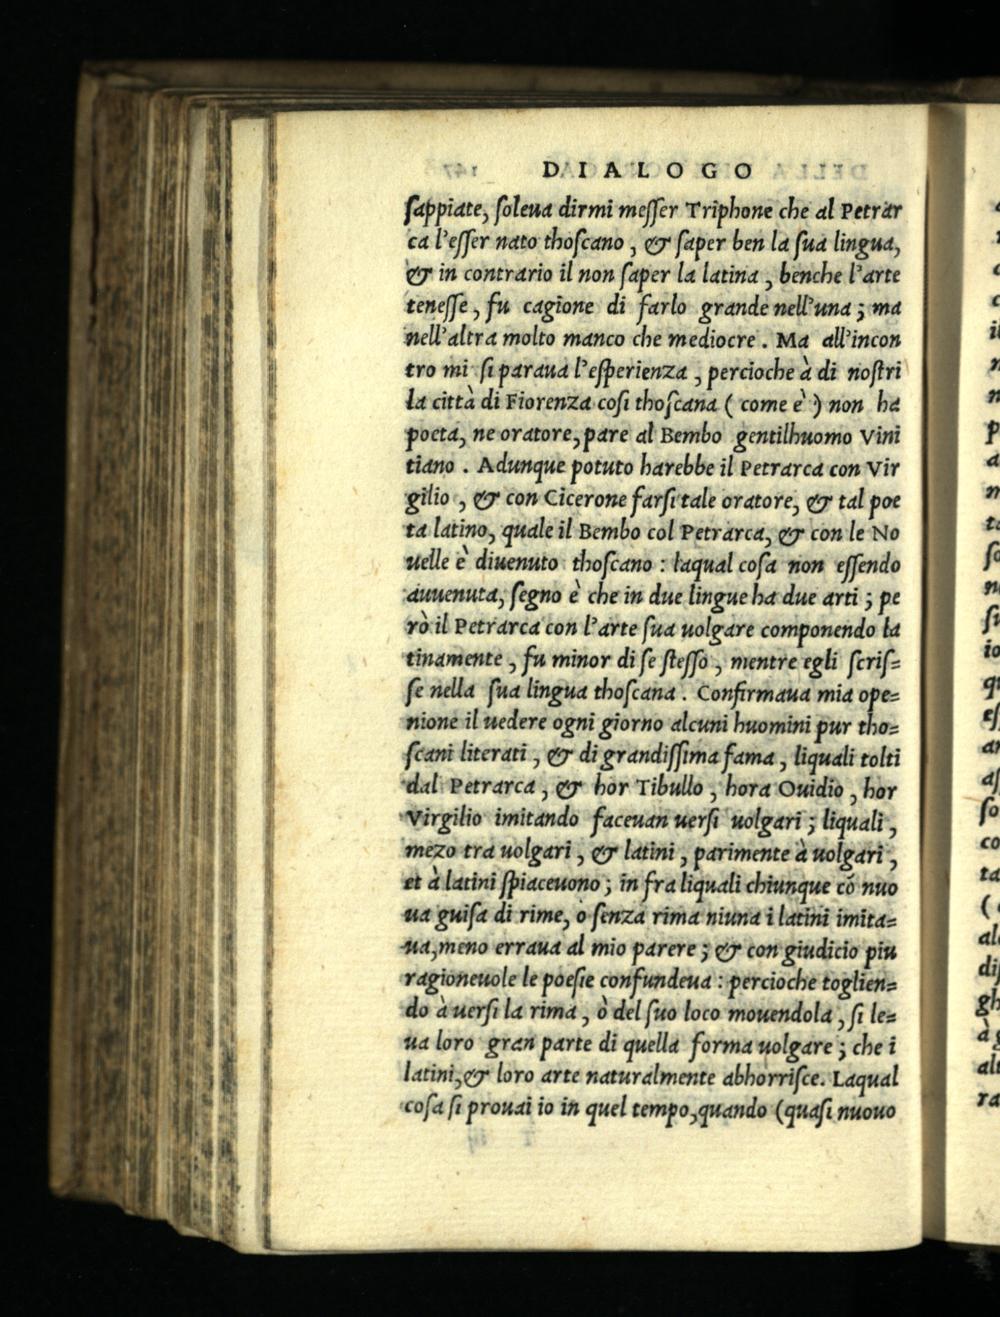 DIALOGO
sappiate, soleua dirmi messer Triphone che al Petrar
ca l'esser nato thoscano, & saper ben la sua lingua,
& in contrario il non saper la latina, benche l'arte
tenesse, fu cagione di farlo grande nell'una; ma
nell'altra molto manco che mediocre. Ma all'incon
tro mi si paraua l'esperienza, percioche à di nostri
la città di Fiorenza cosi thoscana (come è) non ha
poeta, ne oratore, pare al Bembo gentilhuomo Vini
tiano. Adunque potuto harebbe il Petrarca con Vir
gilio, & con Cicerone farsi tale oratore, & tal poe
ta latino, quale il Bembo col Petrarca, & con le No
uelle è diuenuto thoscano: laqual cosa non essendo
auuenuta, segno è che in due lingue ha due arti; pe
rò il Petrarca con l'arte sua uolgare componendo la
tinamente, fu minor di se stesso, mentre egli scris=
se nella sua lingua thoscana. Confirmaua mia ope=
nione il uedere ogni giorno alcuni huomini pur tho=
scani literati, & di grandissima fama, liquali tolti
dal Petrarca, & hor Tibullo, hora Ouidio, hor
Virgilio imitando faceuan uersi uolgari; liquali,
mezo tra uolgari, & latini, parimente à uolgari,
et à latini spiaceuono; in fra liquali chiunque cō nuo
ua guisa di rime, o senza rima niuna i latini imita=
ua, meno erraua al mio parere; & con giudicio piu
ragioneuole le poesie confundeua: percioche toglien=
do à uersi la rima, ò del suo loco mouendola, si le=
ua loro gran parte di quella forma uolgare; che i
latini, & loro arte naturalmente abhorrisce. Laqual
cosa si prouai io in quel tempo, quando (quasi nuouo